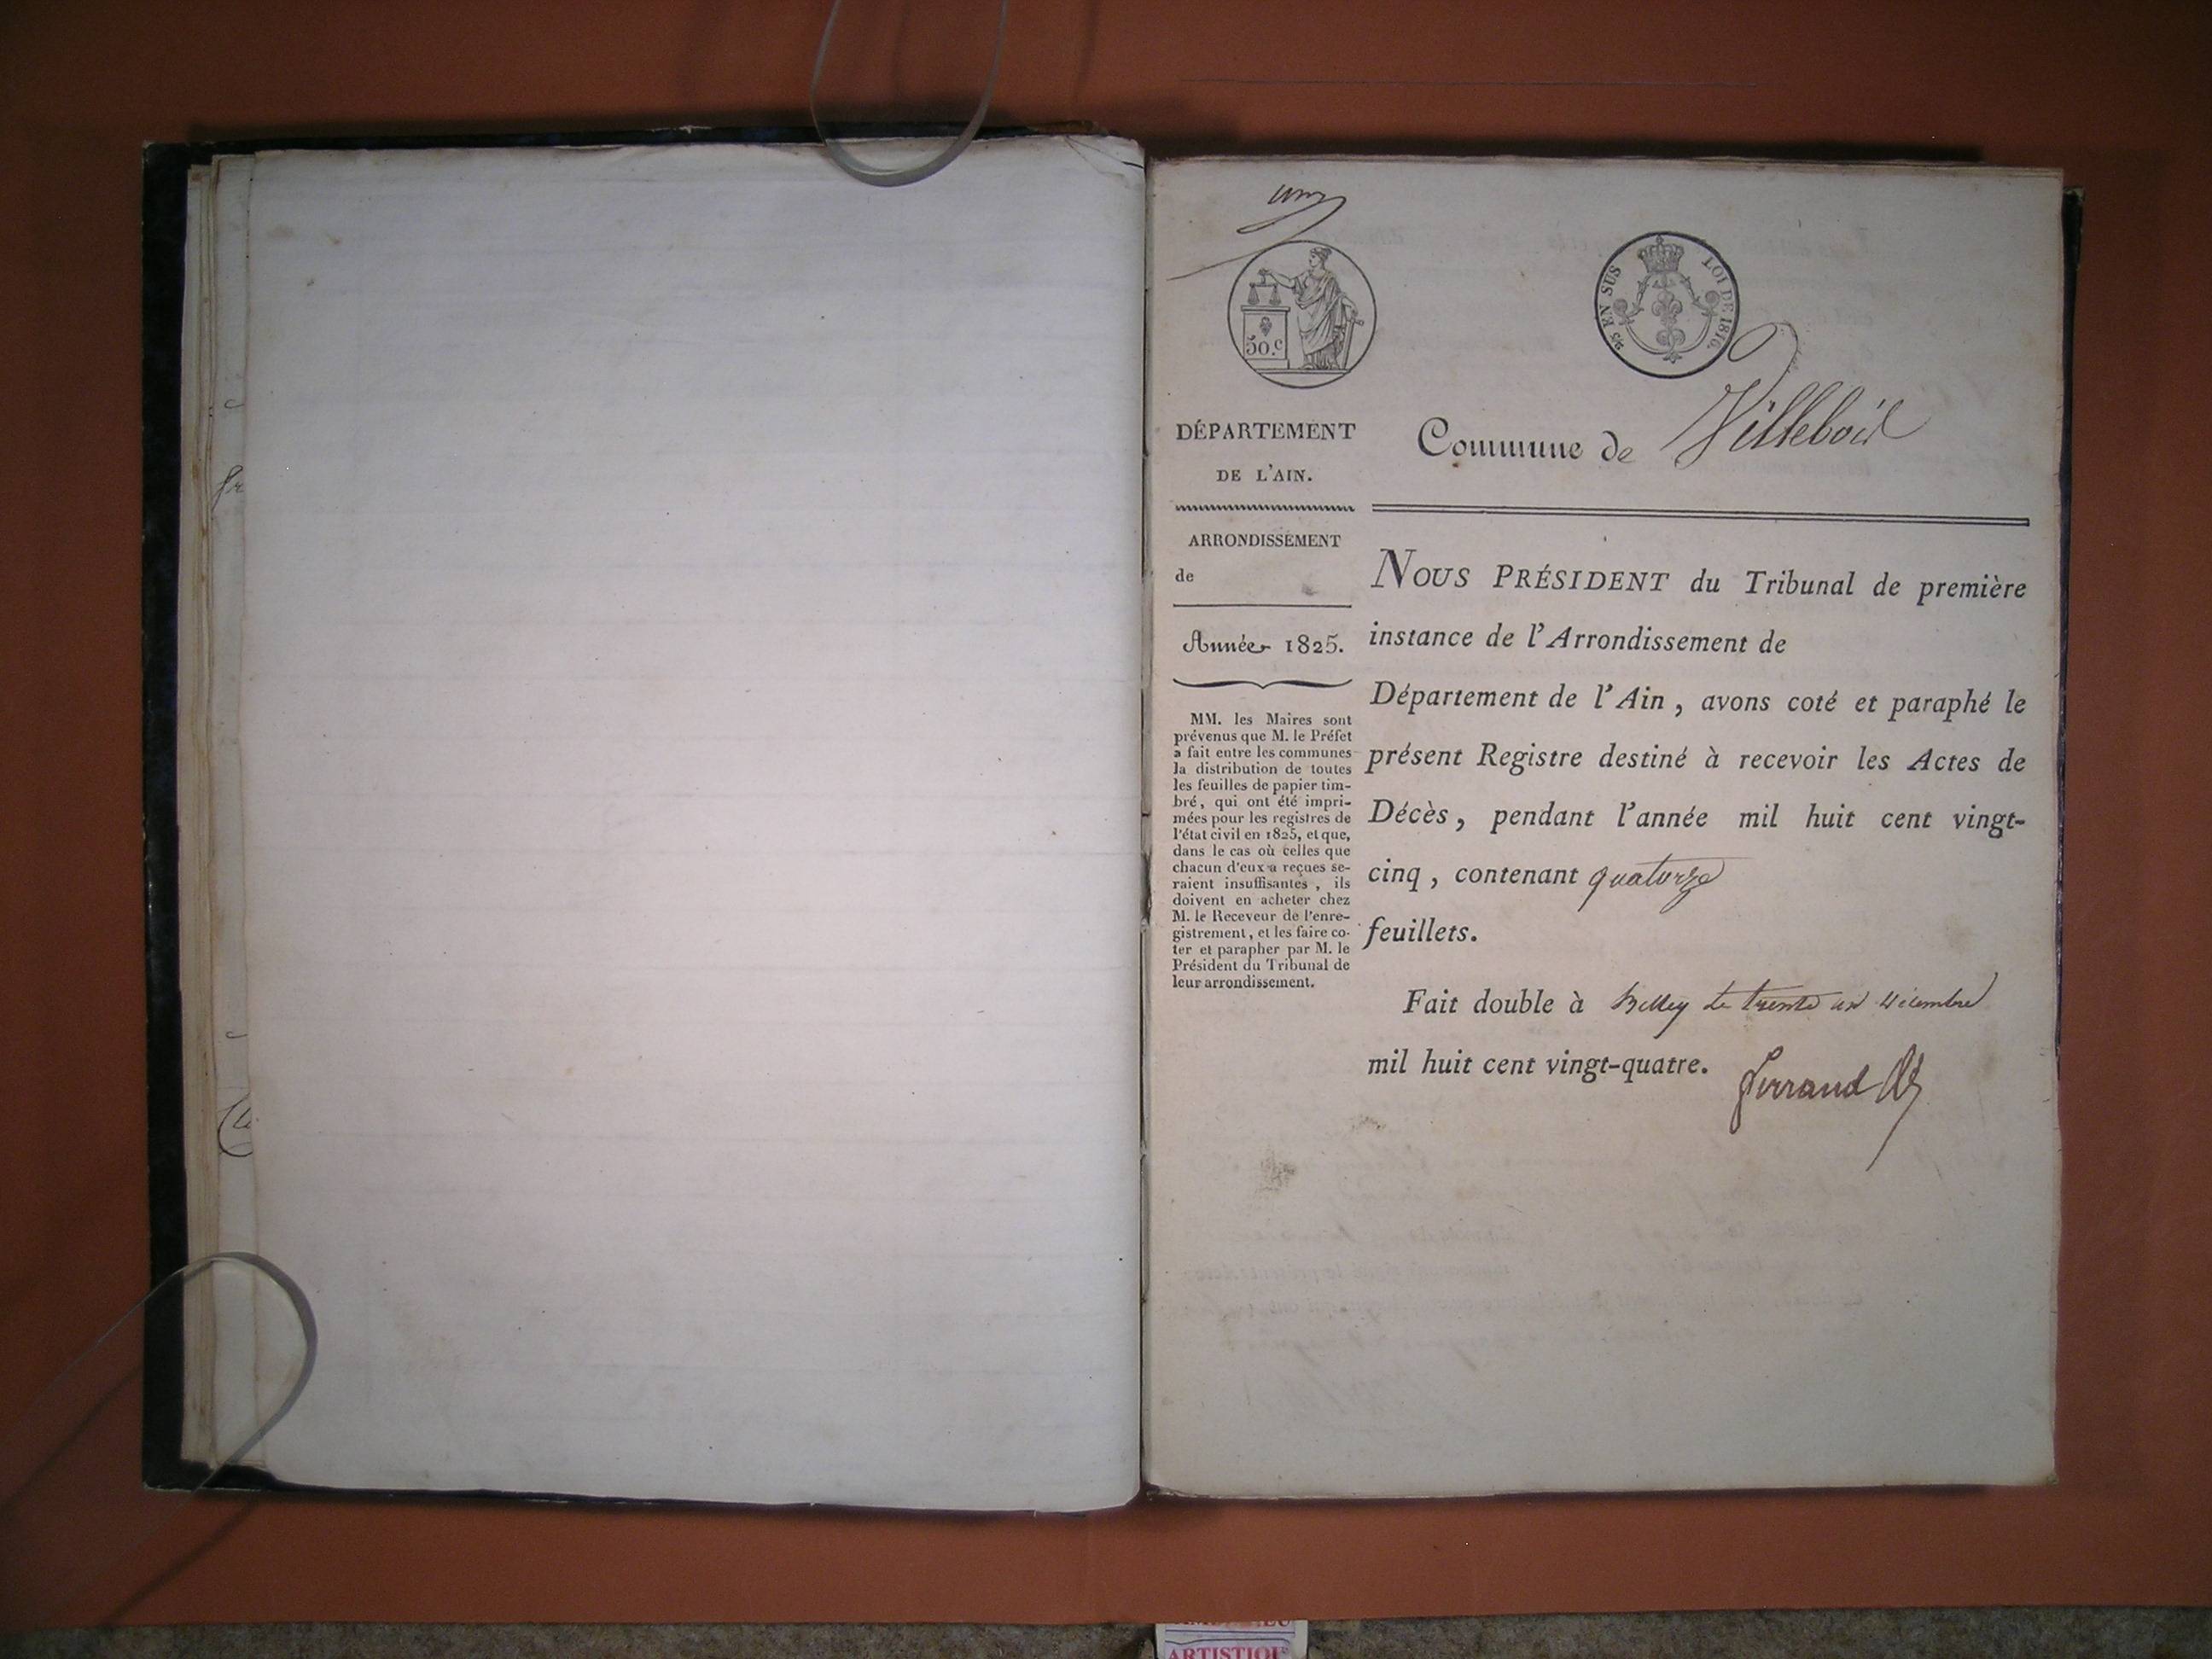 un
50.c
EN SUS LOI DE 1816.
DÉPARTEMENT
DE L'AIN.
Commune de Villebois
ARRONDISSEMENT
de
Année 1825.
MM. les Maires sont
prévenus que M. le Préfet
a fait entre les communes
la distribution de toutes
les feuilles de papier tim-
bré, qui ont été impri-
mées pour les registres de
l'état civil en 1825, et que,
dans le cas où celles que
chacun d'eux a reçues se-
raient insuffisantes, ils
doivent en acheter chez
M. le Receveur de l'enre-
gistrement, et les faire co-
ter et parapher par M. le
Président du Tribunal de
leur arrondissement.
NOUS PRÉSIDENT du Tribunal de première
instance de l'Arrondissement de
Département de l'Ain, avons coté et paraphé le
présent Registre destiné à recevoir les Actes de
Décès, pendant l'année mil huit cent vingt-
cinq, contenant quatorze
feuillets.
Fait double à Belley le trente un décembre
mil huit cent vingt-quatre.
ferrand
ARTISTIQUE